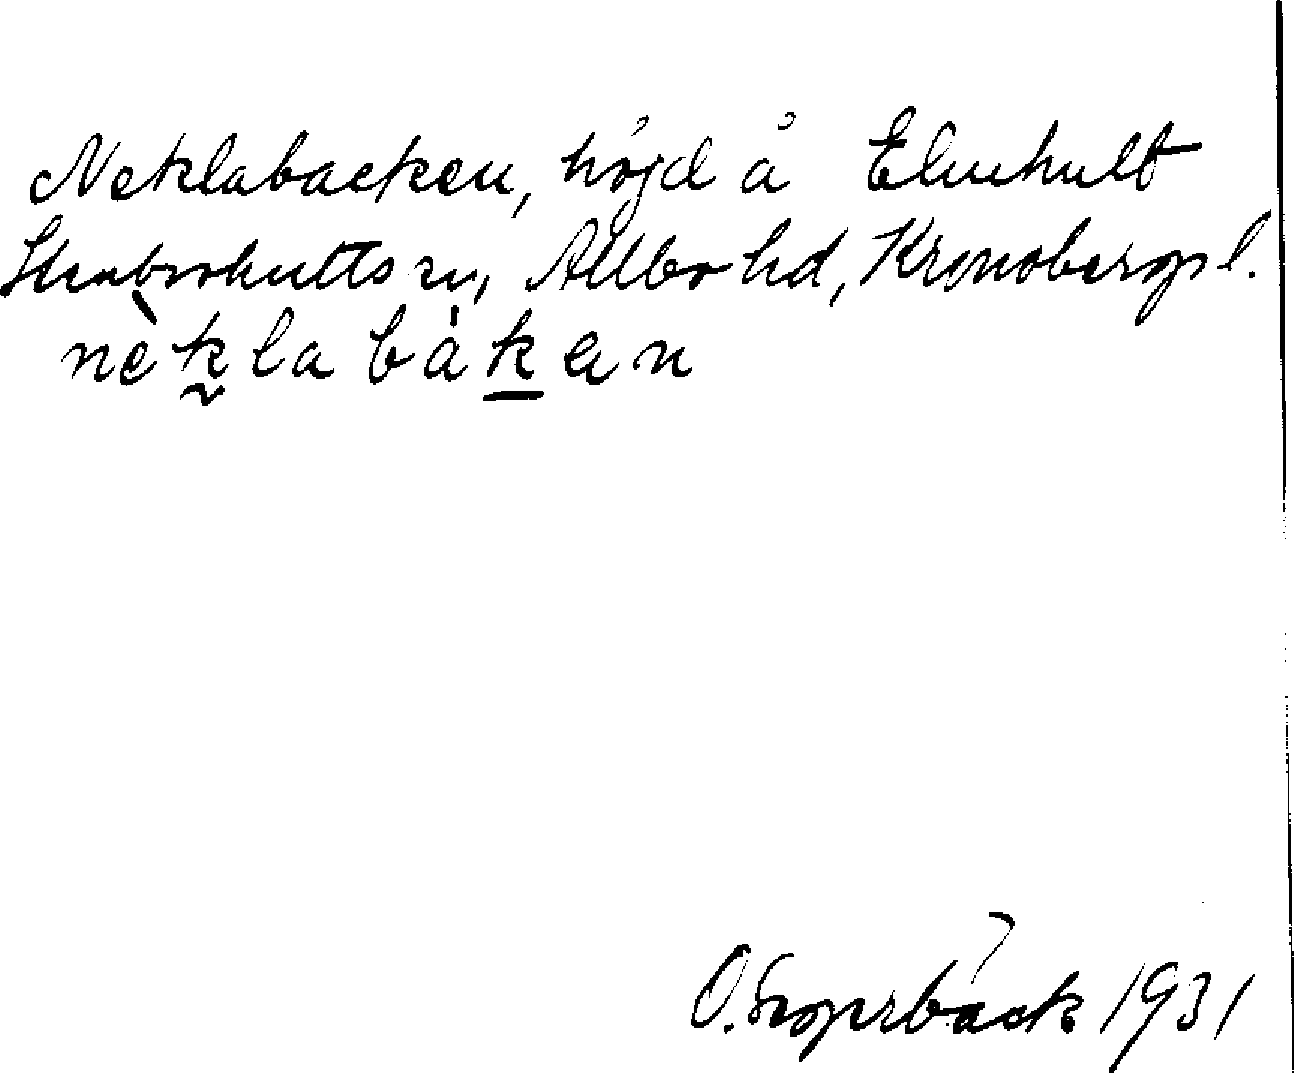 Neklabacken, höjd å Elmhult
Stenbrohults sn, Allbo hd, Kronobergs l.
nèklabàken
O. Sporrbäck 1931